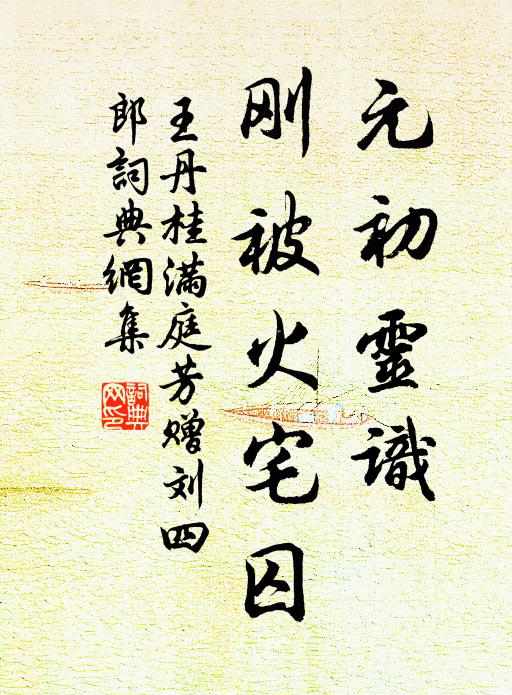 元初靈識
刚被火宅囚
王丹桂满庭芳赠刘四
郎詞典網集
詞典
网印